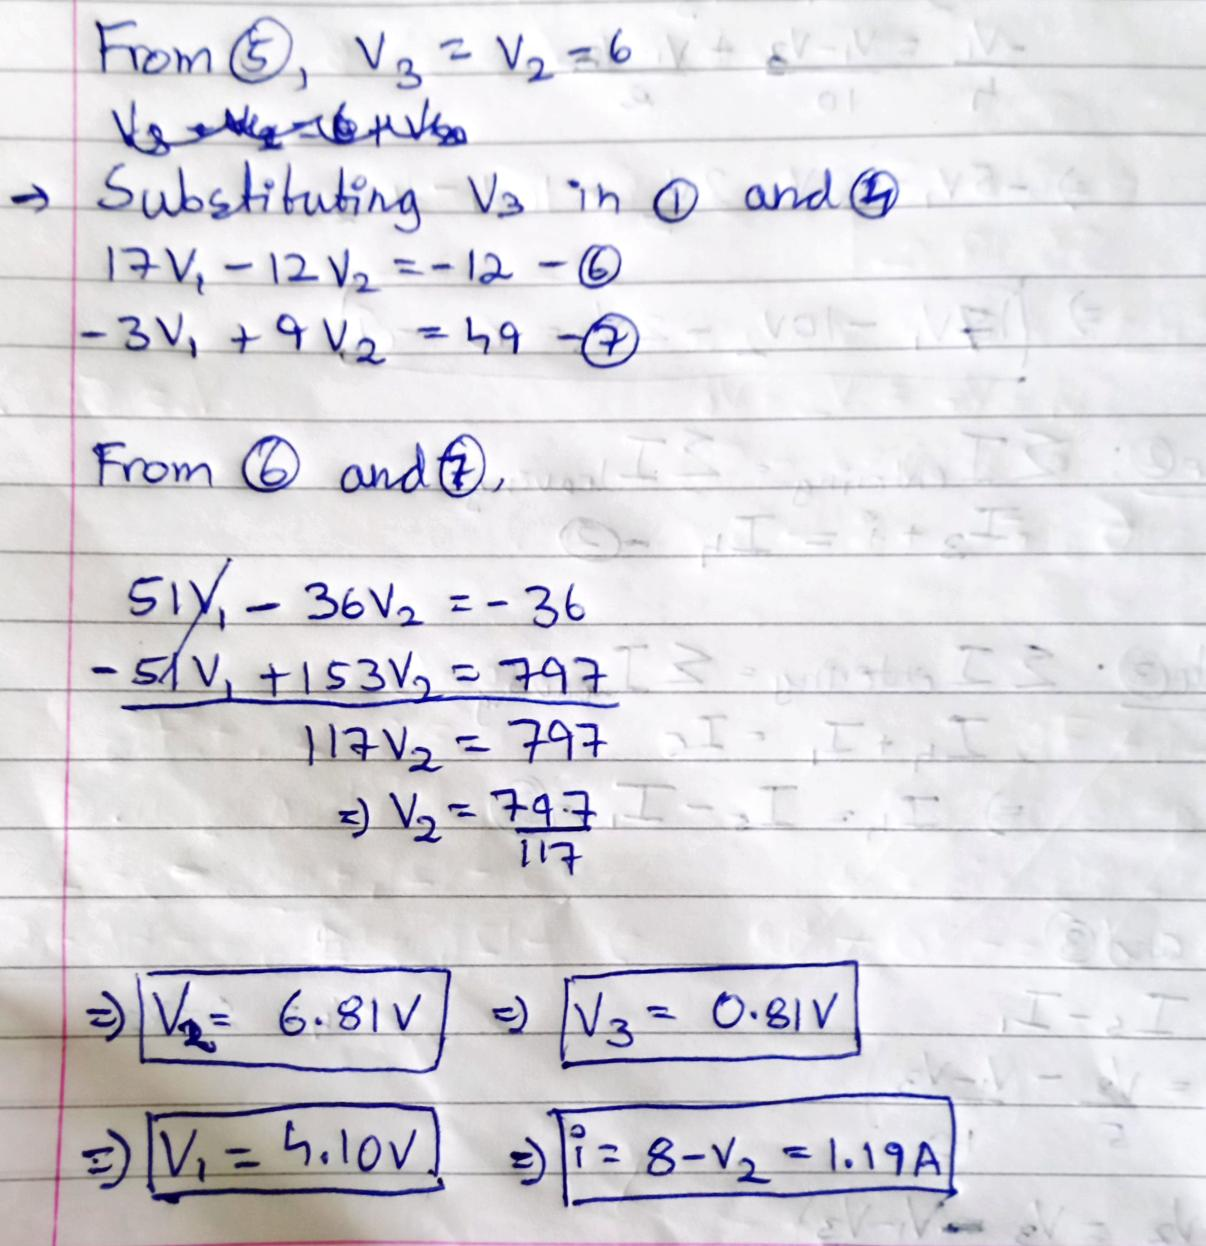 From ⑤, V₃ = V₂ - 6
→ Substituting V₃ in ① and ④
17V₁ - 12V₂ = -12 - ⑥
-3V₁ + 9V₂ = 49 - ⑦
From ⑥ and ⑦,
51V₁ - 36V₂ = -36
-51V₁ + 153V₂ = 797
117V₂ = 797
=> V₂ = 797
117
=> V₂ = 6.81V => V₃ = 0.81V
=> V₁ = 4.10V => i = 8-V₂ = 1.19A